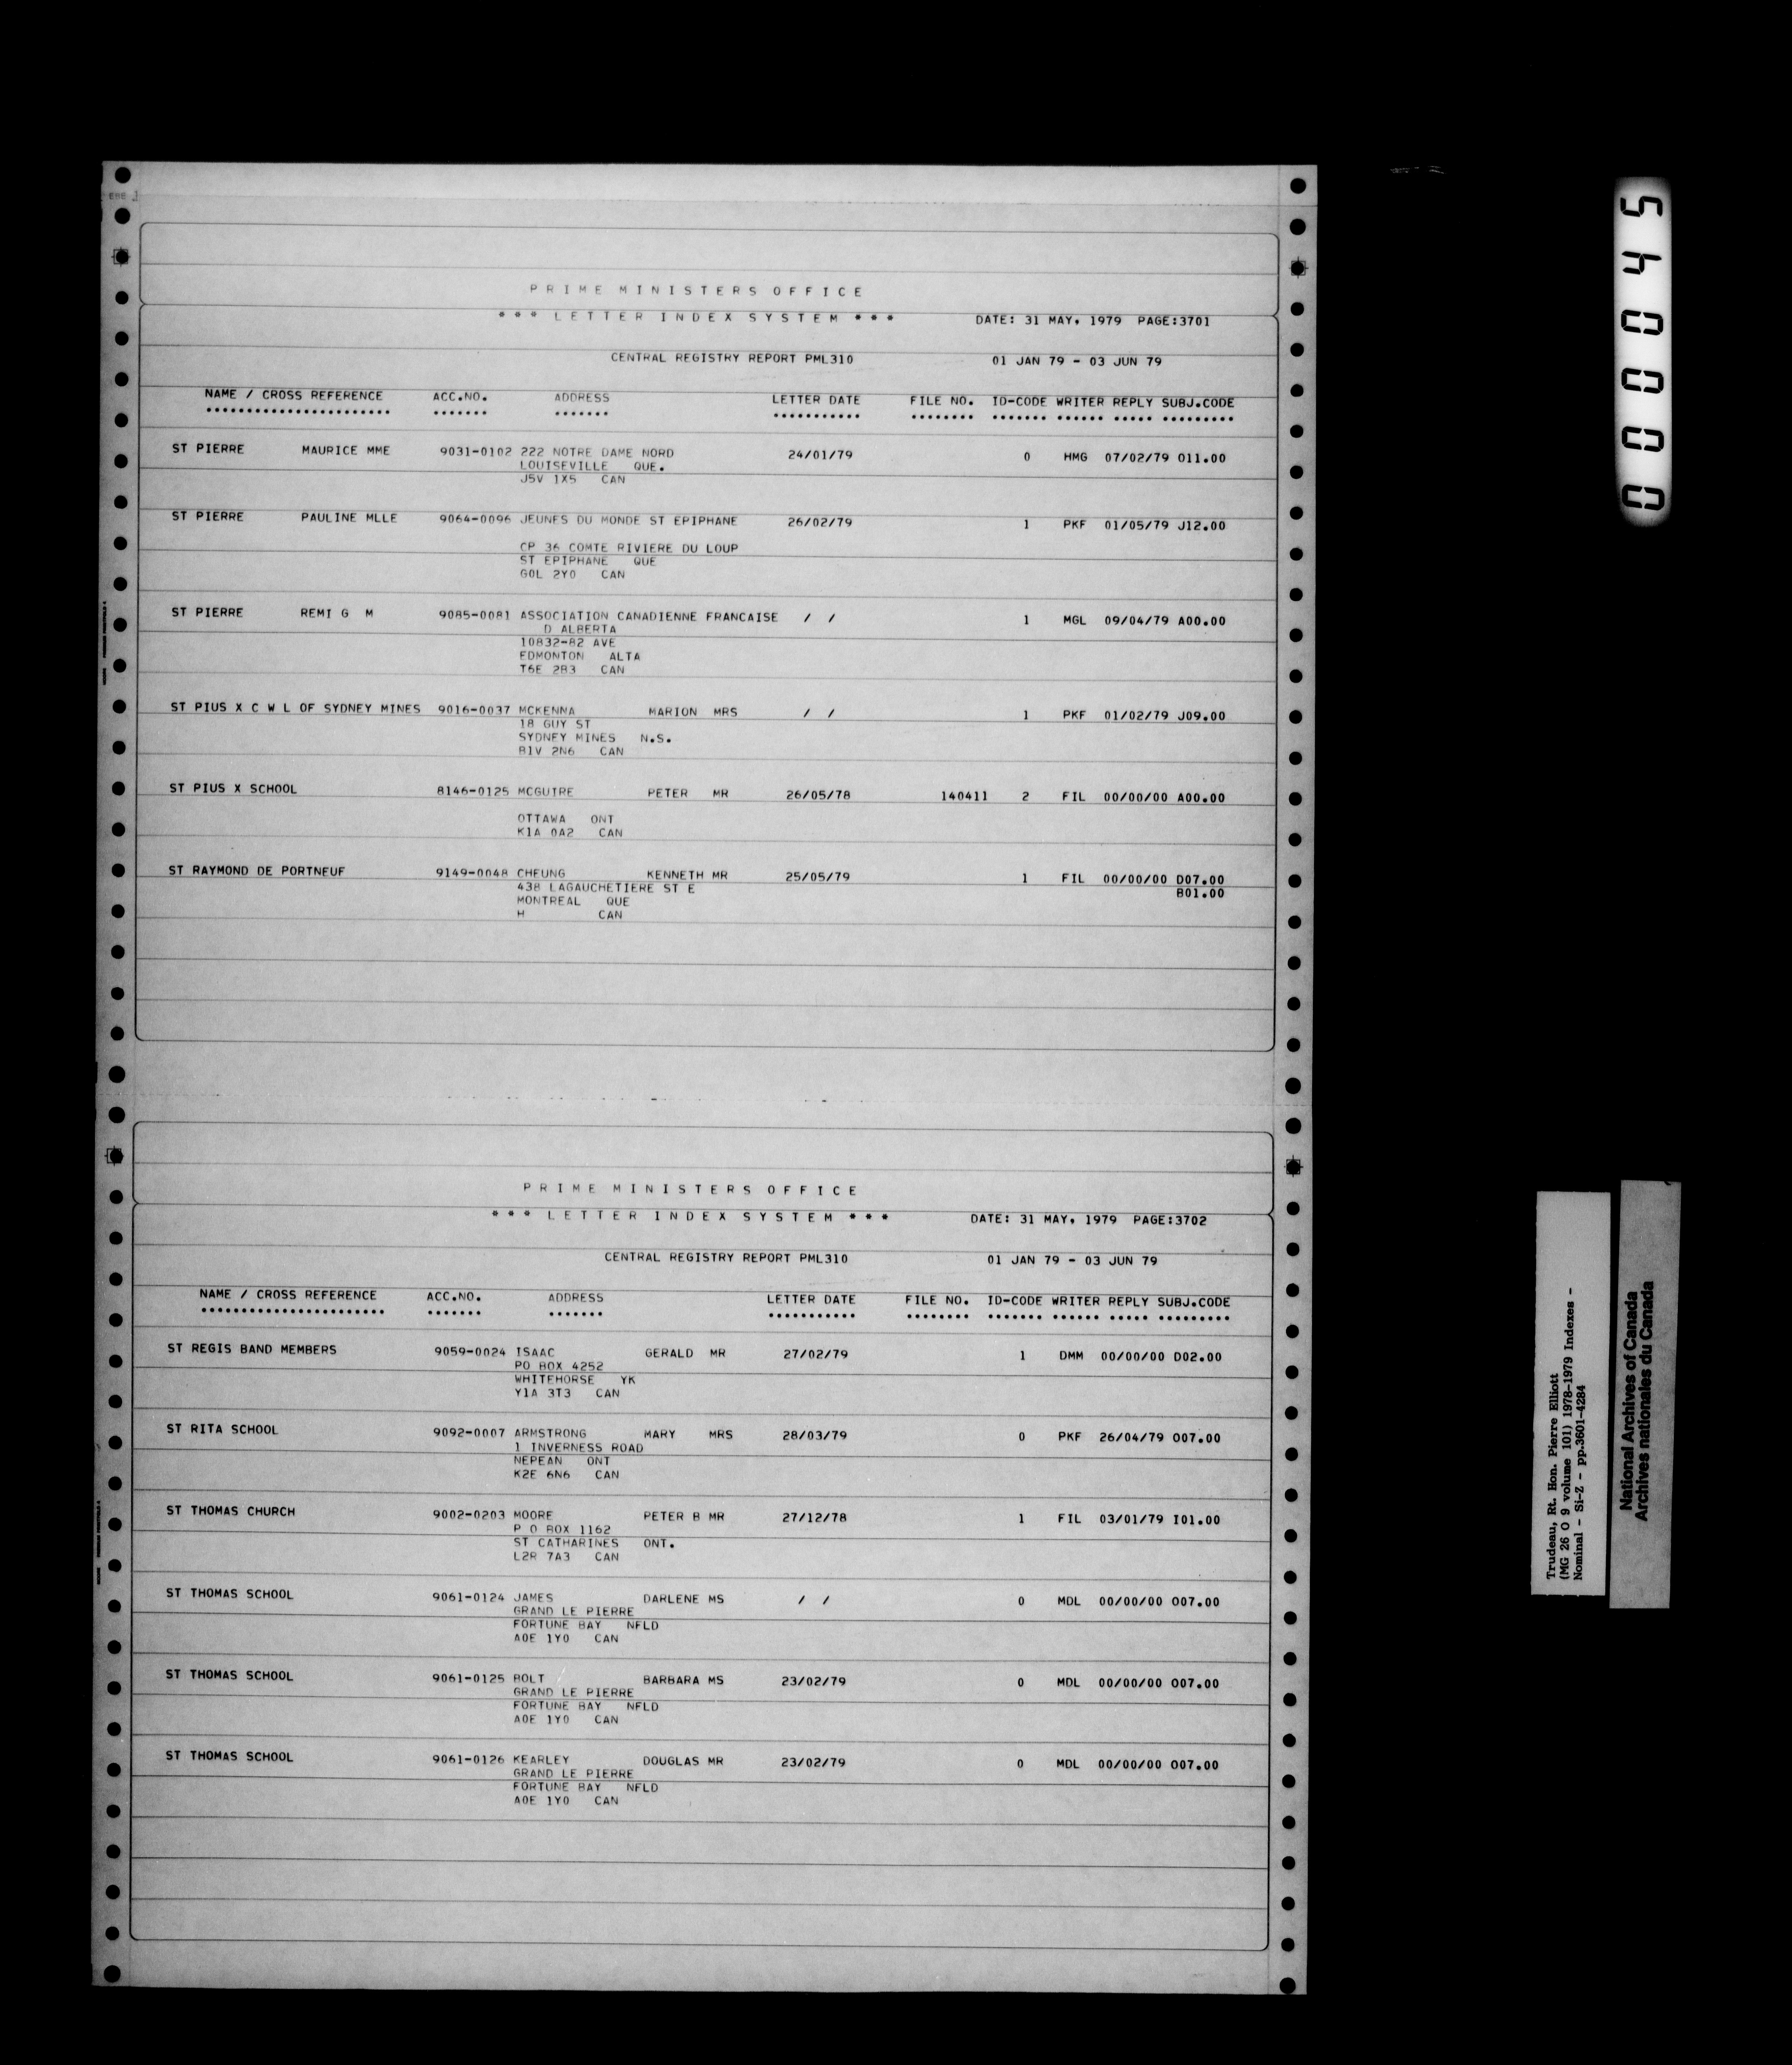 PRIME MINISTERS OFFICE
*** LETTER INDEX SYSTEM *** DATE: 31 MAY, 1979 PAGE:3701
CENTRAL REGISTRY REPORT PML310 01 JAN 79 - 03 JUN 79
NAME / CROSS REFERENCE ACC.NO. ADDRESS LETTER DATE FILE NO. ID-CODE WRITER REPLY SUBJ.CODE
ST PIERRE MAURICE MME 9031-0102 222 NOTRE DAME NORD 24/01/79 0 HMG 07/02/79 011.00
LOUISEVILLE QUE.
J5V 1X5 CAN
ST PIERRE PAULINE MLLE 9064-0096 JEUNES DU MONDE ST EPIPHANE 26/02/79 1 PKF 01/05/79 J12.00
CP 36 COMTE RIVIERE DU LOUP
ST EPIPHANE QUE
G0L 2Y0 CAN
ST PIERRE REMI G M 9085-0081 ASSOCIATION CANADIENNE FRANCAISE / / 1 MGL 09/04/79 A00.00
D ALBERTA
10832-82 AVE
EDMONTON ALTA
T6E 2B3 CAN
ST PIUS X C W L OF SYDNEY MINES 9016-0037 MCKENNA MARION MRS / / 1 PKF 01/02/79 J09.00
18 GUY ST
SYDNEY MINES N.S.
B1V 2N6 CAN
ST PIUS X SCHOOL 8146-0125 MCGUIRE PETER MR 26/05/78 140411 2 FIL 00/00/00 A00.00
OTTAWA ONT
K1A 0A2 CAN
ST RAYMOND DE PORTNEUF 9149-0048 CHEUNG KENNETH MR 25/05/79 1 FIL 00/00/00 D07.00
438 LAGAUCHETIERE ST E B01.00
MONTREAL QUE
H CAN
PRIME MINISTERS OFFICE
*** LETTER INDEX SYSTEM *** DATE: 31 MAY, 1979 PAGE:3702
CENTRAL REGISTRY REPORT PML310 01 JAN 79 - 03 JUN 79
NAME / CROSS REFERENCE ACC.NO. ADDRESS LETTER DATE FILE NO. ID-CODE WRITER REPLY SUBJ.CODE
ST REGIS BAND MEMBERS 9059-0024 ISAAC GERALD MR 27/02/79 1 DMM 00/00/00 D02.00
PO BOX 4252
WHITEHORSE YK
Y1A 3T3 CAN
ST RITA SCHOOL 9092-0007 ARMSTRONG MARY MRS 28/03/79 0 PKF 26/04/79 O07.00
1 INVERNESS ROAD
NEPEAN ONT
K2E 6N6 CAN
ST THOMAS CHURCH 9002-0203 MOORE PETER B MR 27/12/78 1 FIL 03/01/79 I01.00
P O BOX 1162
ST CATHARINES ONT.
L2R 7A3 CAN
ST THOMAS SCHOOL 9061-0124 JAMES DARLENE MS / / 0 MDL 00/00/00 O07.00
GRAND LE PIERRE
FORTUNE BAY NFLD
A0E 1Y0 CAN
ST THOMAS SCHOOL 9061-0125 BOLT BARBARA MS 23/02/79 0 MDL 00/00/00 O07.00
GRAND LE PIERRE
FORTUNE BAY NFLD
A0E 1Y0 CAN
ST THOMAS SCHOOL 9061-0126 KEARLEY DOUGLAS MR 23/02/79 0 MDL 00/00/00 O07.00
GRAND LE PIERRE
FORTUNE BAY NFLD
A0E 1Y0 CAN
000045
Trudeau, Rt. Hon. Pierre Elliott
(MG 26 O 9 volume 101) 1978-1979 Indexes -
Nominal - Si-Z - pp.3601-4284
National Archives of Canada
Archives nationales du Canada